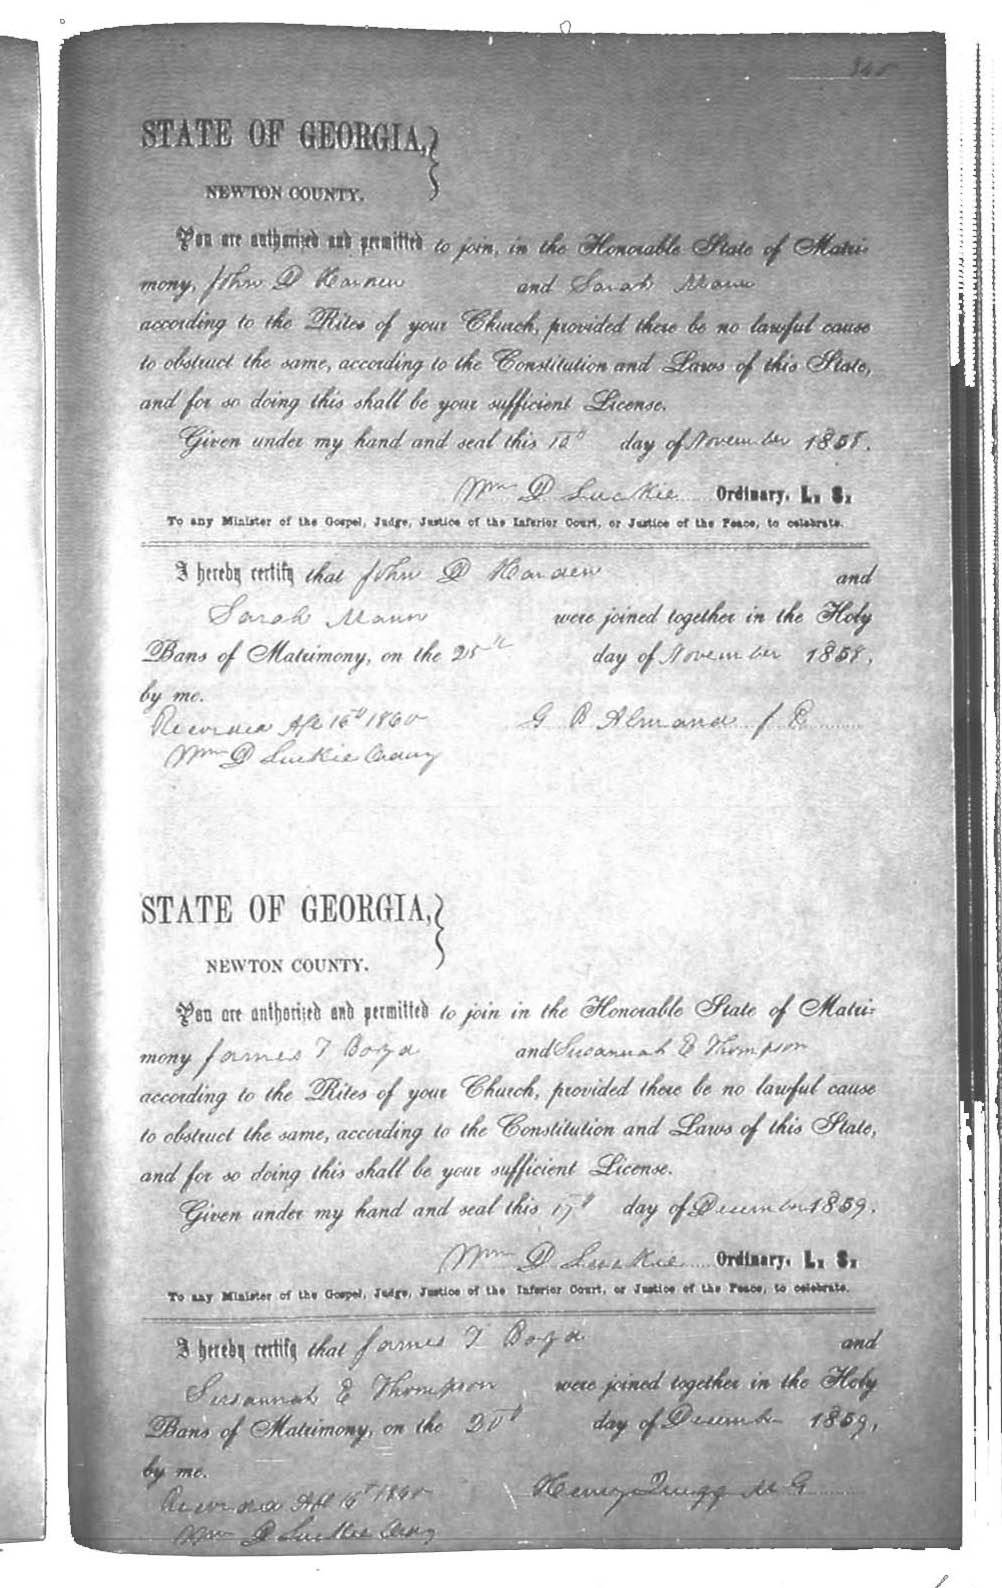 STATE OF GEORGIA,
NEWTON COUNTY.
You are authorized and permitted to join, in the Honorable State of Matri-
mony, John D Harden and Sarah Mann
according to the Rites of your Church, provided there be no lawful cause
to obstruct the same, according to the Constitution and Laws of this State,
and for so doing this shall be your sufficient License.
Given under my hand and seal this day of November 1858.
Wm D Luckie Ordinary, L. S.
To any Minister of the Gospel, Judge, Justice of the Inferior Court, or Justice of the Peace, to celebrate.
I hereby certify that John D Harden and
Sarah Mann were joined together in the Holy
Bans of Matrimony, on the 25th day of November 1858,
by me.
Recorded Apl 16th 1860 G B Almand J P
Wm D Luckie Ordny
STATE OF GEORGIA,
NEWTON COUNTY.
You are authorized and permitted to join in the Honorable State of Matri-
mony James T Boyd and Susannah E Thompson
according to the Rites of your Church, provided there be no lawful cause
to obstruct the same, according to the Constitution and Laws of this State,
and for so doing this shall be your sufficient License.
Given under my hand and seal this 17th day of December 1859.
Wm D Luckie Ordinary, L. S.
To any Minister of the Gospel, Judge, Justice of the Inferior Court, or Justice of the Peace, to celebrate.
I hereby certify that James T Boyd and
Susannah E Thompson were joined together in the Holy
Bans of Matrimony, on the 20th day of December 1859,
by me.
Recorded Apl 16th 1860 Henry Quigg M G
Wm D Luckie Ordny